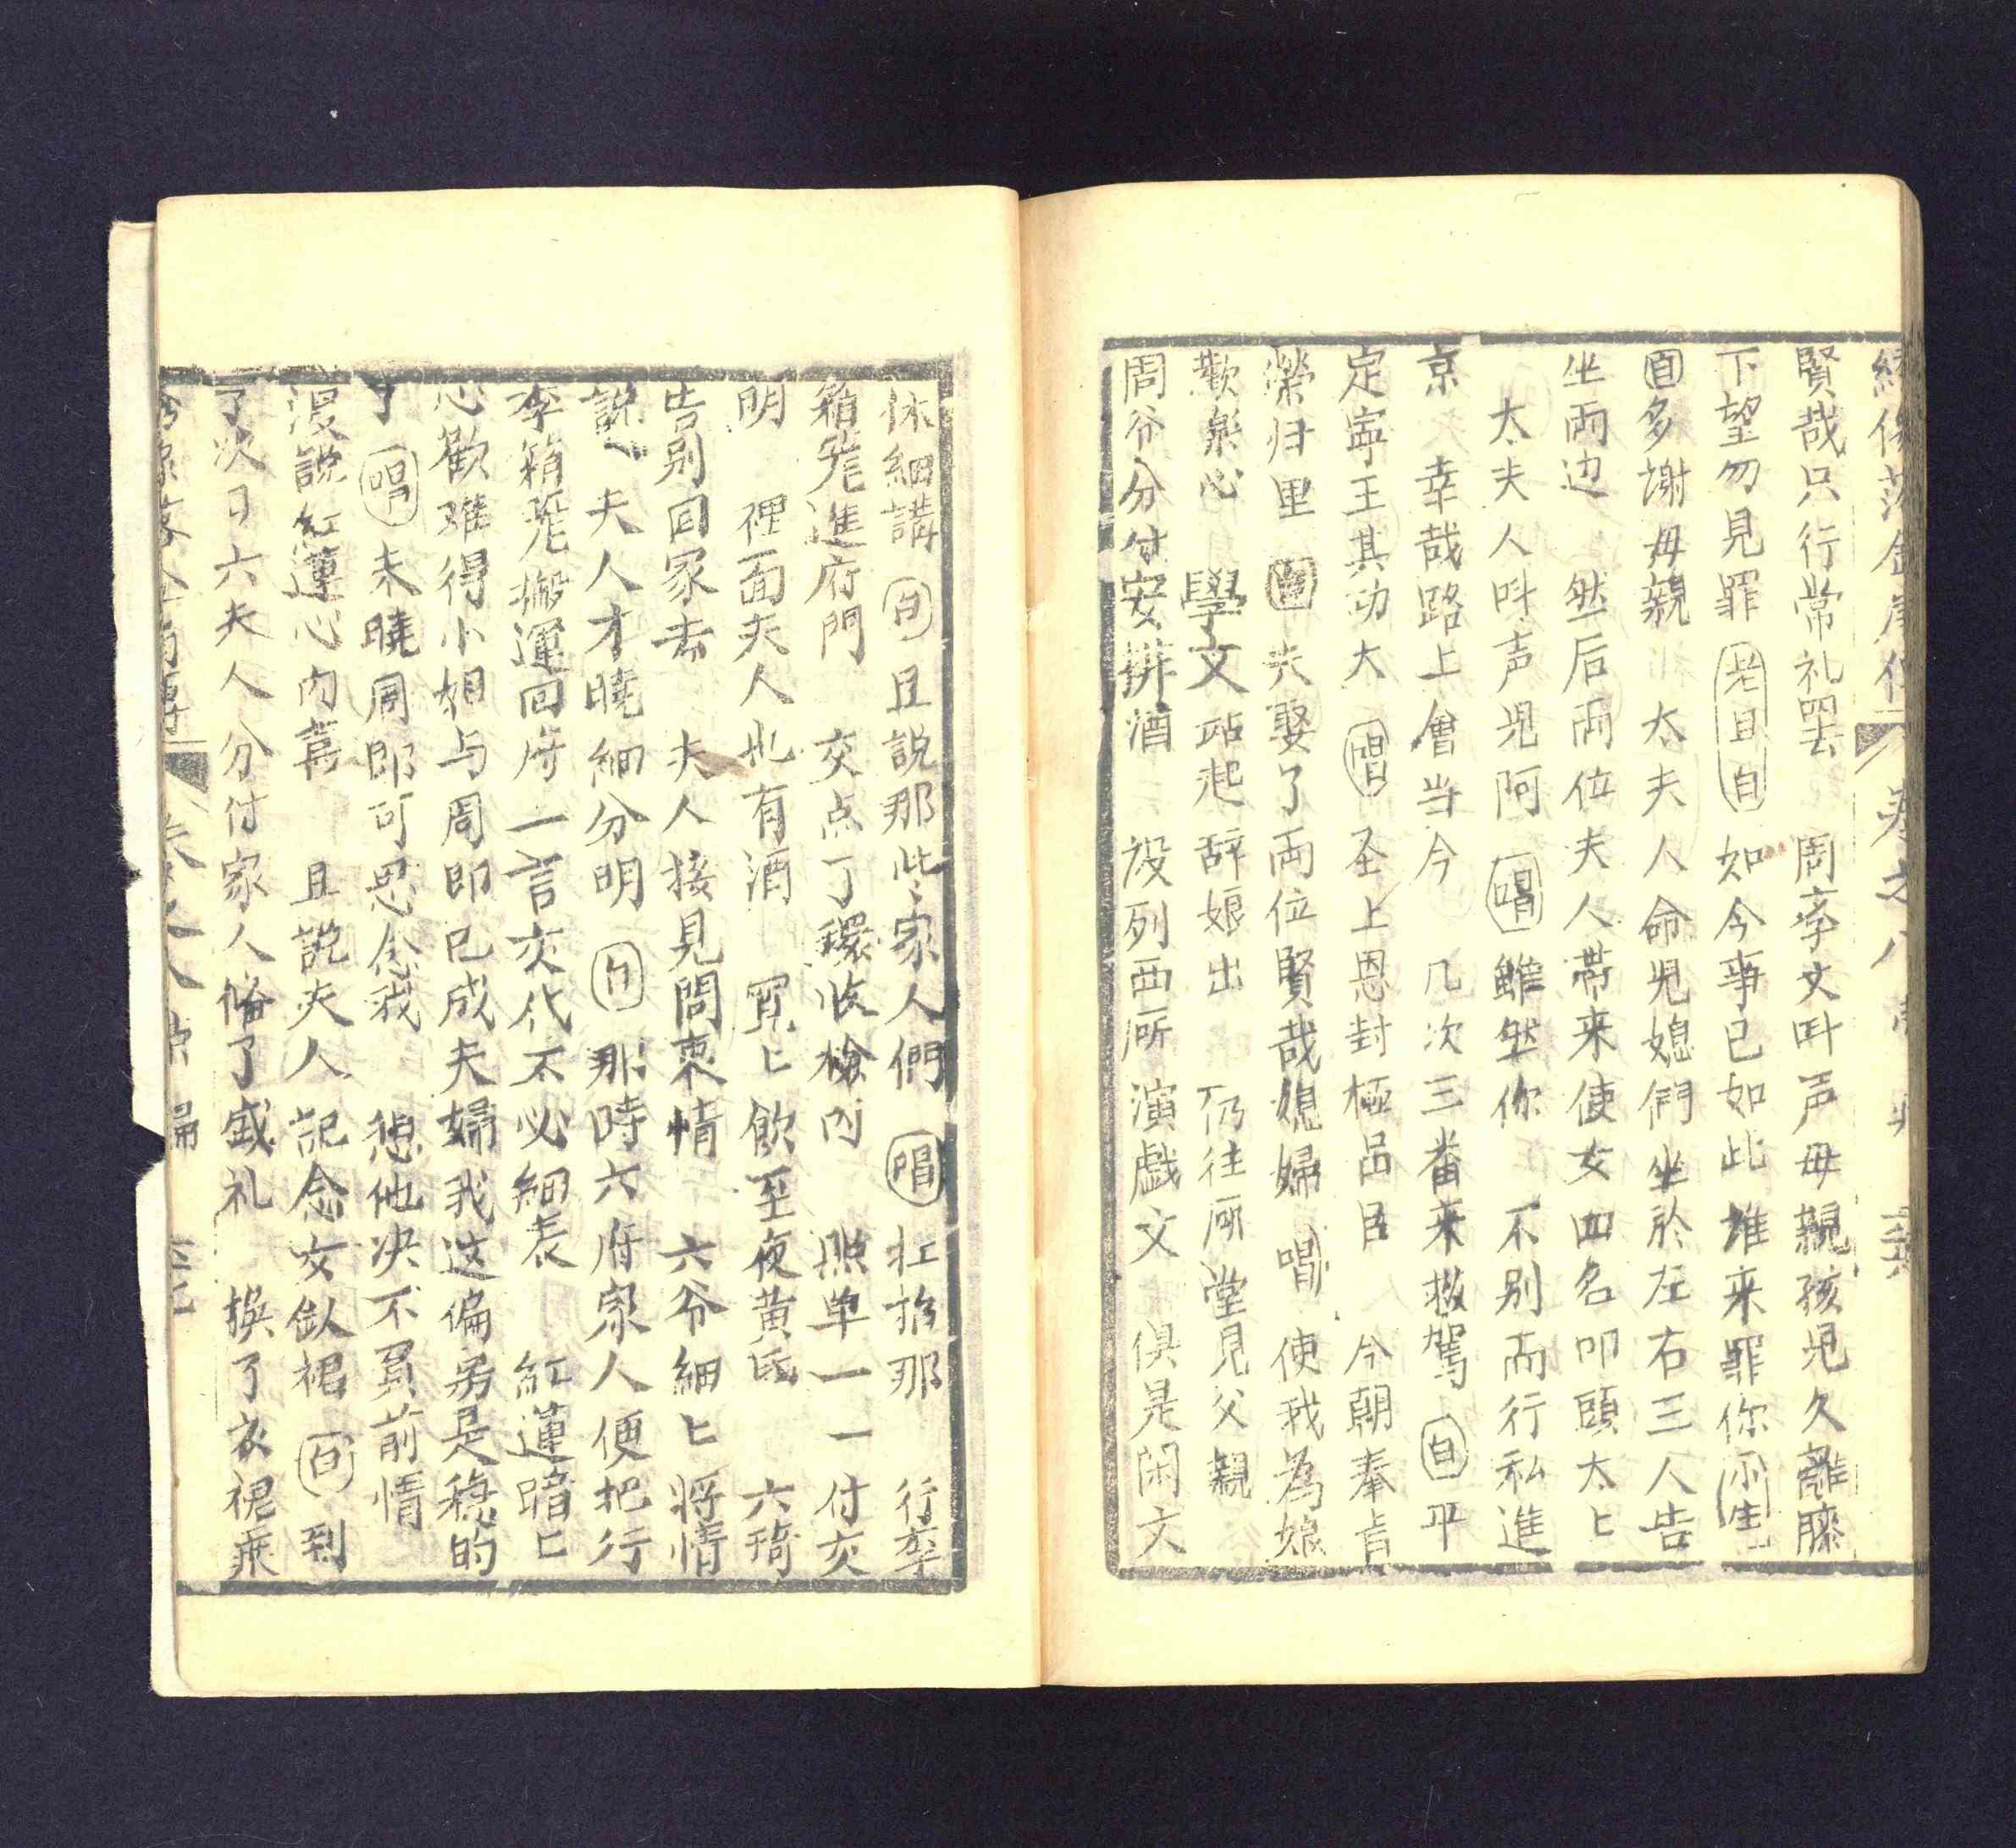 賢哉只行常礼罢　周孝文呌声母親孩児久離膝
下望勿見罪　老旦白　如今事已如此誰来罪你　小生
白　多謝母親　太夫人命児媳們坐於左右三人告
坐両边　然后両位夫人帶来使女四名叩頭太匕
太夫人呌声児阿　唱　雖然你　不别而行私進
京　幸哉路上會当今　几次三番来救駕　白　平
定寧王其功大　唱　圣上恩封極品臣　今朝奉㫖
榮归里　夫娶了両位賢哉媳婦　唱　使我為娘
歡楽心　學文站起辞娘出　仍往𠩄堂見父親
周爷分付安排酒　設列西𠩄演戯文　俱是闲文
休細講　白　且説那些家人們　唱　扛抬那　行李
箱篼進府門　交点丫環收檢内　照单一一付交
明　裡面夫人也有酒　寛匕飲至夜黄昏　六𤦺
告别回家去　夫人接見問衷情　六爷細匕将情
説　夫人才曉細分明　白　那時六府家人便把行
李箱篼搬運回府一言交代不必細表　紅蓮暗匕
心歡难得小姐与周郎已成夫婦我这偏房是穏的
了　唱　未曉周郎可思念我　想他决不負前情
漫說紅蓮心内喜　且説夫人記念女釵裙　白　到
了次日六夫人分付家人俻了盛礼　换了衣裙乘